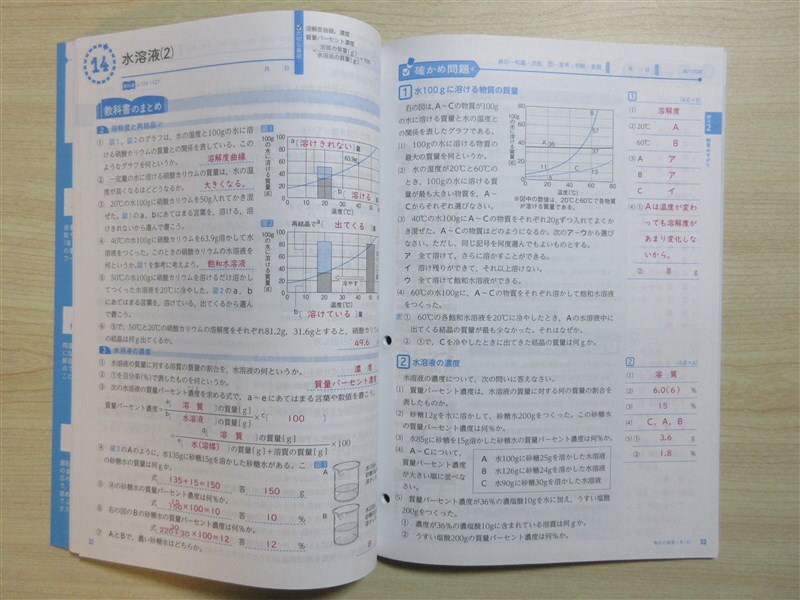 14
水溶液(2)
溶解度曲線，濃度
質量パーセント濃度
溶質の質量〔g〕
水溶液の質量〔g〕
×100
月 日
教科書のまとめ
2 溶解度と再結晶
① 図1，図2のグラフは，水の温度と100gの水に溶
ける硝酸カリウムの質量との関係を表している。この
ようなグラフを何というか。
溶解度曲線
② 一定量の水に溶ける硝酸カリウムの質量は，水の温
度が高くなるほどどうなるか。
大きくなる。
③ 20℃の水100gに硝酸カリウムを50g入れてかき混
ぜた。図1のa，bにあてはまる言葉を，溶ける，溶
けきれないから選んで書こう。
④ 40℃の水100gに硝酸カリウムを63.9g溶かして水
溶液をつくった。このときの硝酸カリウムの水溶液を
何というか。図1を参考に考えよう。
飽和水溶液
⑤ 50℃の水100gに硝酸カリウムを溶けるだけ溶か
してつくった水溶液を20℃に冷やした。図2のa，b
にあてはまる言葉を，溶けている，出てくるから選ん
で書こう。
⑥ ⑤で，50℃と20℃の硝酸カリウムの溶解度をそれぞれ81.2g，31.6gとすると，硝酸カリウム
の結晶は何g出てくるか。
49.6
図1
a〔溶けきれない〕
63.9g
b〔溶ける〕
温度〔℃〕
図2
再結晶でa〔出てくる〕
冷やす
温度〔℃〕
b〔溶けている〕量
3 水溶液の濃度
① 水溶液の質量に対する溶質の質量の割合を，水溶液の何というか。
濃度
② ①を百分率(%)で表したものを何というか。
質量パーセント濃度
③ 次の水溶液の質量パーセント濃度を求める式で，a～eにあてはまる言葉や数値を書こう。
質量パーセント濃度＝
a〔溶質〕の質量〔g〕
b〔水溶液〕の質量〔g〕
×c〔100〕
d〔溶質〕の質量〔g〕
e〔水(溶媒)〕の質量〔g〕＋溶質の質量〔g〕
×100
④ 図3のAのように，水135gに砂糖15gを溶かした砂糖水がある。こ
の砂糖水の質量は何gか。
式 135+15=150 答 150 g
⑤ ④の砂糖水の質量パーセント濃度は何％か。
式 15/150×100=10 答 10 %
⑥ 右の図のBの砂糖水の質量パーセント濃度は何％か。
式 30/220+30×100=12 答 12 %
⑦ AとBで，濃い砂糖水はどちらか。
B
図3
A
B
32
確かめ問題
1 水100gに溶ける物質の質量
右の図は，A～Cの物質が100g
の水に溶ける質量と水の温度と
の関係を表したグラフである。
(1) 100gの水に溶ける物質の
最大の質量を何というか。
(2) 水の温度が20℃と60℃の
とき，100gの水に溶ける質
量が最も大きい物質を，A～
Cからそれぞれ選びなさい。
100gの水に溶ける質量〔g〕
温度〔℃〕
※図中の数値は，20℃と60℃で各物質
が溶ける質量である。
(3) 40℃の水100gにA～Cの物質をそれぞれ20gずつ入れてよくか
き混ぜた。A～Cの物質はどのようになるか。次のア～ウから選び
なさい。ただし，同じ記号を何度選んでもよいものとする。
ア 全て溶けて，さらに溶かすことができる。
イ 溶け残りができて，それ以上溶けない。
ウ 全て溶けて飽和水溶液ができる。
(4) 60℃の水100gに，A～Cの物質をそれぞれ溶かして飽和水溶液
をつくった。
① 60℃の各飽和水溶液を20℃に冷やしたとき，Aの水溶液中に
出てくる結晶の質量が最も少なかった。それはなぜか。
② ①で，Cを冷やしたときに出てきた結晶の質量は何gか。
2 水溶液の濃度
水溶液の濃度について，次の問いに答えなさい。
(1) 質量パーセント濃度は，水溶液の質量に対する何の質量の割合を
表したものか。
(2) 砂糖12gを水に溶かして，砂糖水200gをつくった。この砂糖水
の質量パーセント濃度は何％か。
(3) 水85gに砂糖を15g溶かした砂糖水の質量パーセント濃度は何％か。
(4) A～Cについて，
質量パーセント濃度
が大きい順に並べな
さい。
A 水100gに砂糖25gを溶かした水溶液
B 水126gに砂糖24gを溶かした水溶液
C 水90gに砂糖30gを溶かした水溶液
(5) 質量パーセント濃度が36％の濃塩酸10gを水に加え，うすい塩酸
200gをつくった。
① 濃度が36％の濃塩酸10gに含まれている溶質は何gか。
② うすい塩酸200gの質量パーセント濃度は何％か。
1
(1) 溶解度
(2)20℃ A
60℃ B
(3)A ア
B ア
C イ
(4)① Aは温度が変わ
っても溶解度が
あまり変化しな
いから。
② 8 g
2
(1) 溶質
(2) 6.0(6) %
(3) 15 %
(4) C, A, B
(5)① 3.6 g
② 1.8 %
33